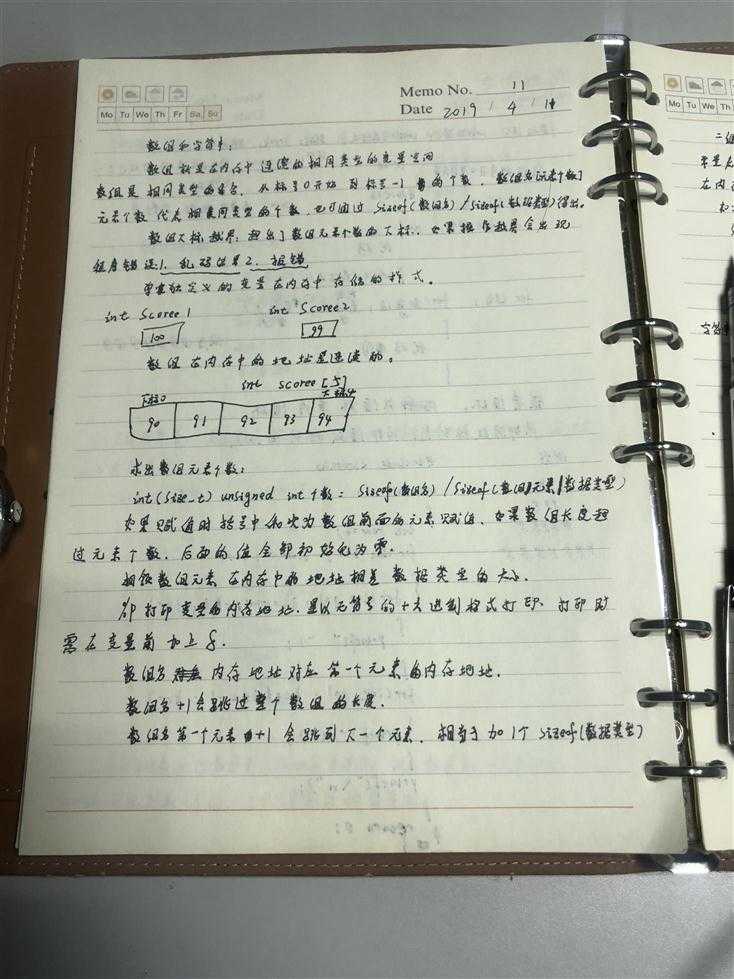 Memo No. 11
Mo Tu We Th Fr Sa Su
Date 2019 / 4 / 11
数组和字符串:
数组就是在内存中连续的相同类型的变量空间
数组是相同类型的集合, 从标号0开始 到标号-1 的个数, 数组名[元素个数]
元素个数 代表相同类型的个数, 也可通过 sizeof(数组名)/sizeof(数据类型)得出。
数组下标越界: 超出了数组元素个数的下标, 如果操作越界会出现
程序错误: 1. 乱码结果 2. 报错
单独定义的变量在内存中存储的样式。
int Scoree1 int Scoree2
100 99
数组在内存中的地址是连续的。
int scoree[5]
下标0 下标4
90 91 92 93 94
求出数组元素个数:
int(Size_t) unsigned int 个数 = Sizeof(数组名) / Sizeof(数组元素/数据类型)
如果赋值时括号中依次为数组前面的元素赋值, 如果数组长度超
过元素个数, 后面的值全部初始化为零.
相邻数组元素在内存中的地址相差 数据类型的大小.
打印变量的内存地址, 是以无符号的十六进制格式打印. 打印时
需在变量前加上&.
数组名 内存地址对应 第一个元素的内存地址.
数组名+1会跳过整个数组的长度.
数组名第一个元素+1会跳到下一个元素, 相当于加1个 sizeof(数据类型)
Mo Tu We Th